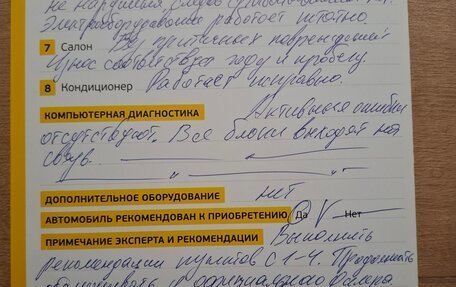 не нарушена. Следов срабатывания нет.
Электрооборудование работает штатно.
7 Салон Без критичных повреждений
Износ соответствует году и пробегу.
8 Кондиционер Работает исправно.
КОМПЬЮТЕРНАЯ ДИАГНОСТИКА Активные ошибки
отсутствуют. Все блоки выходят на
связь.
ДОПОЛНИТЕЛЬНОЕ ОБОРУДОВАНИЕ нет
АВТОМОБИЛЬ РЕКОМЕНДОВАН К ПРИОБРЕТЕНИЮ Да V Нет
ПРИМЕЧАНИЕ ЭКСПЕРТА И РЕКОМЕНДАЦИИ Выполнить
рекомендации пунктов с 1-4. Продолжать
официального дилера